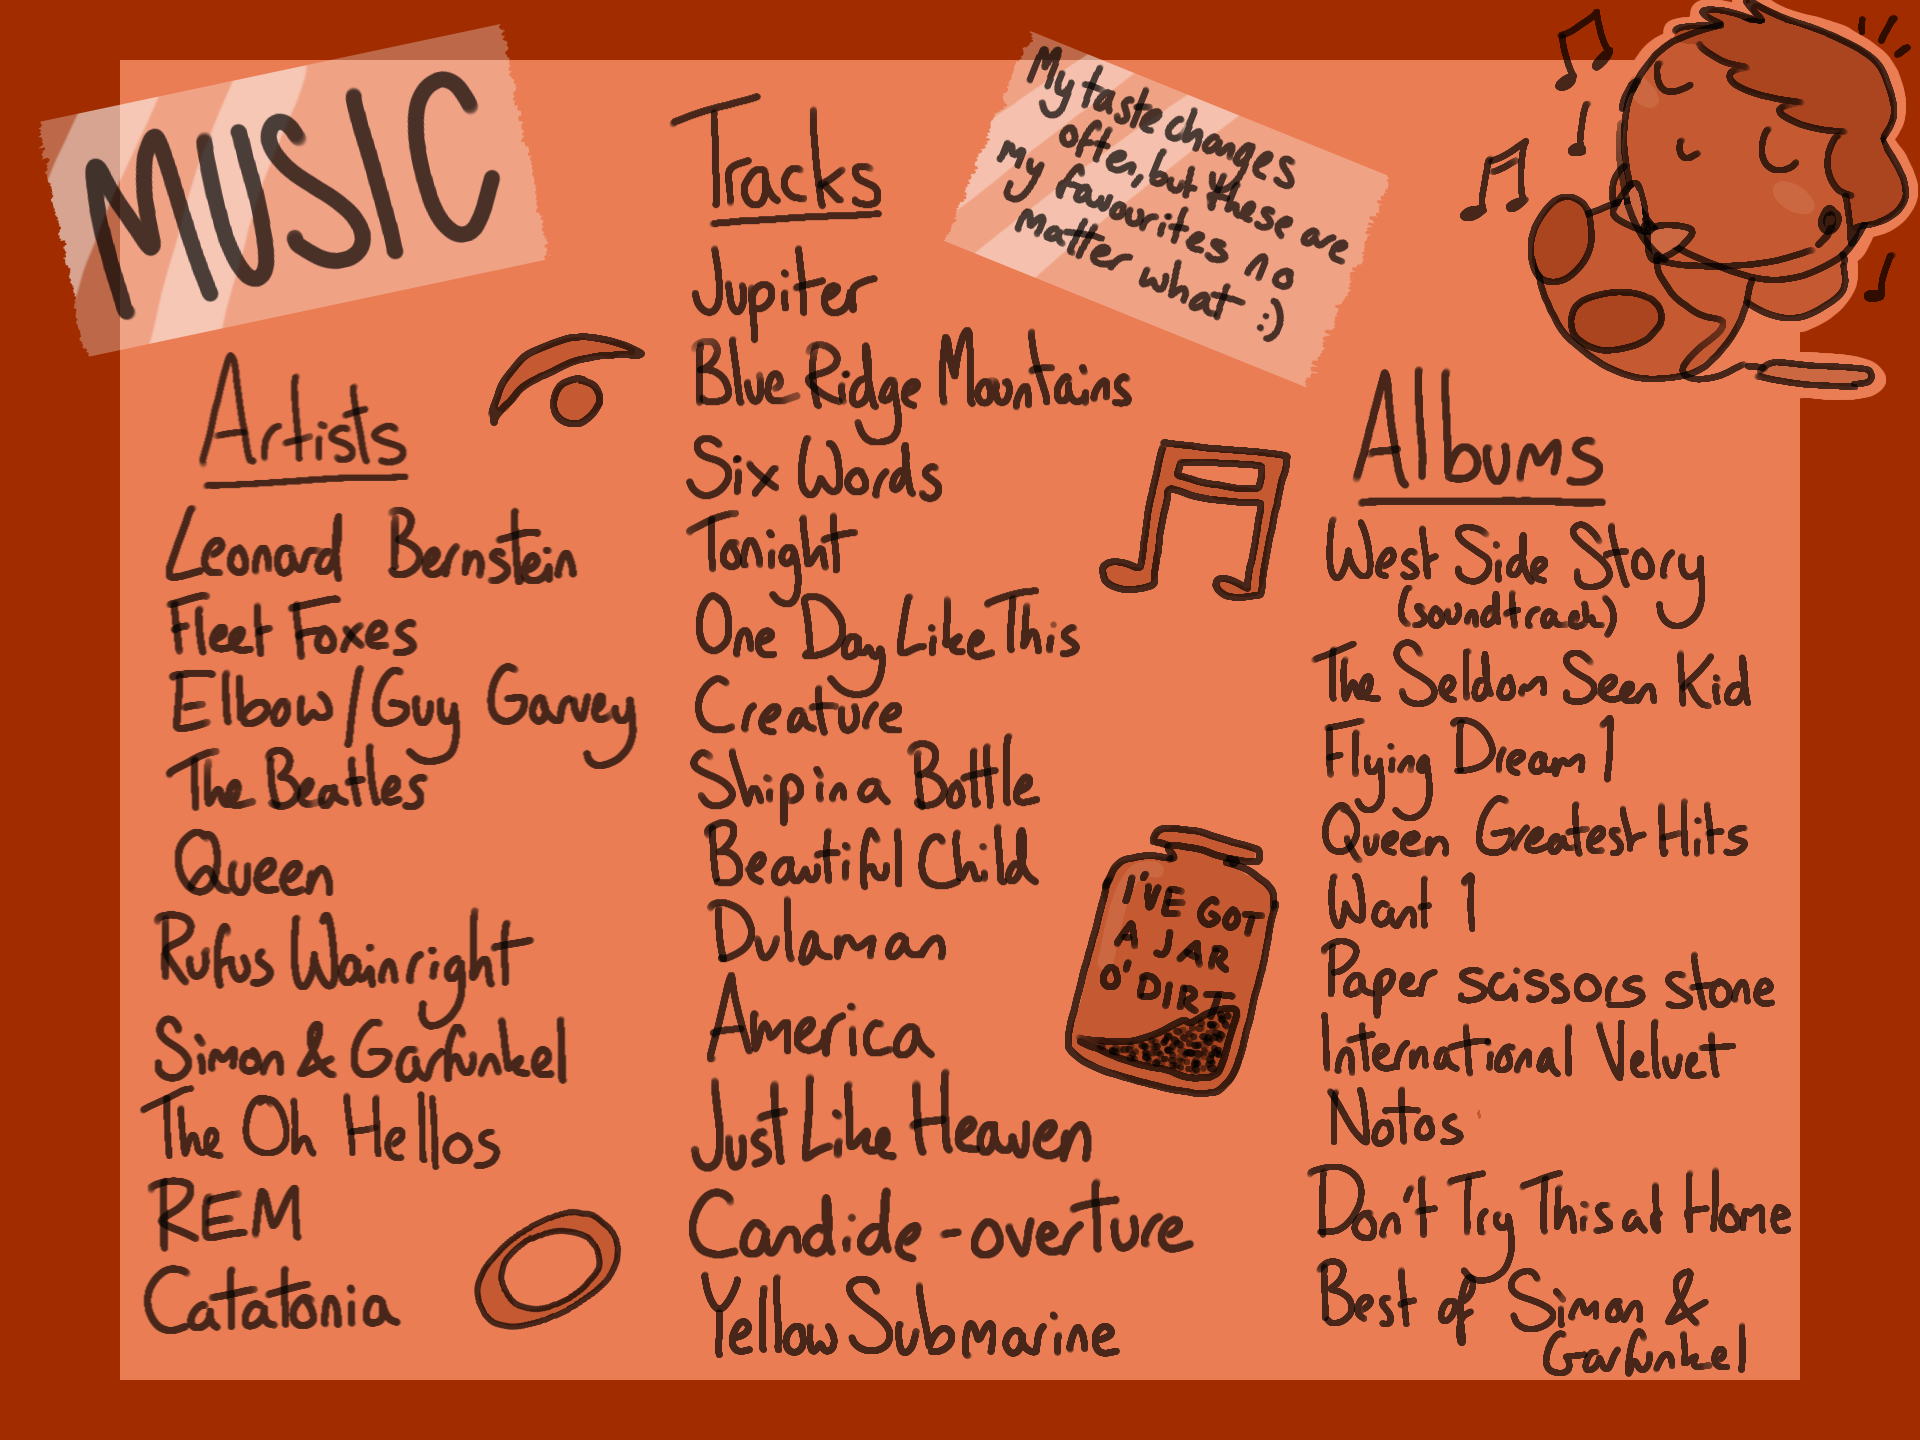 MUSIC
My taste changes
often, but these are
my favourites no
matter what :)
Artists
Leonard Bernstein
Fleet Foxes
Elbow/Guy Garvey
The Beatles
Queen
Rufus Wainright
Simon & Garfunkel
The Oh Hellos
REM
Catatonia
Tracks
Jupiter
Blue Ridge Mountains
Six Words
Tonight
One Day Like This
Creature
Ship in a Bottle
Beautiful Child
Dulaman
America
Just Like Heaven
Candide - overture
Yellow Submarine
I'VE GOT
A JAR
O' DIRT
Albums
West Side Story
(soundtrack)
The Seldom Seen Kid
Flying Dream 1
Queen Greatest Hits
Want 1
Paper scissors stone
International Velvet
Notos
Don't Try This at Home
Best of Simon &
Garfunkel